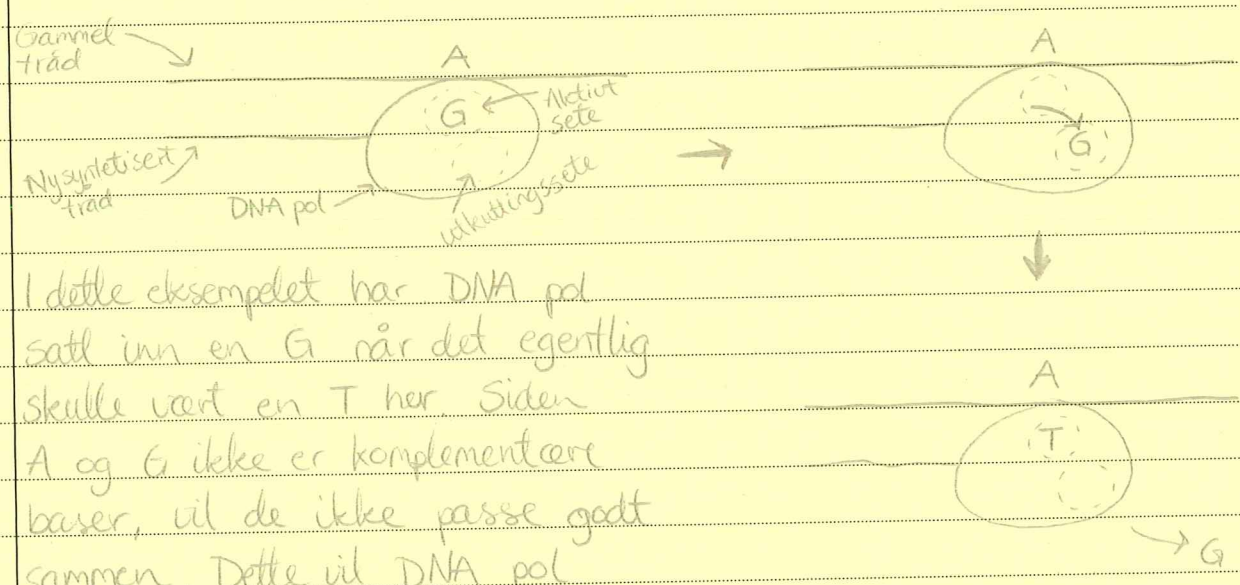 Gammel
tråd
A
G
Aktivt
sete
Nysyntetisert
tråd
DNA pol
utkuttingssete
A
G
I dette eksempelet har DNA pol
satt inn en G når det egentlig
skulle vært en T her. Siden
A og G ikke er komplementære
baser, vil de ikke passe godt
sammen. Dette vil DNA pol
A
T
G